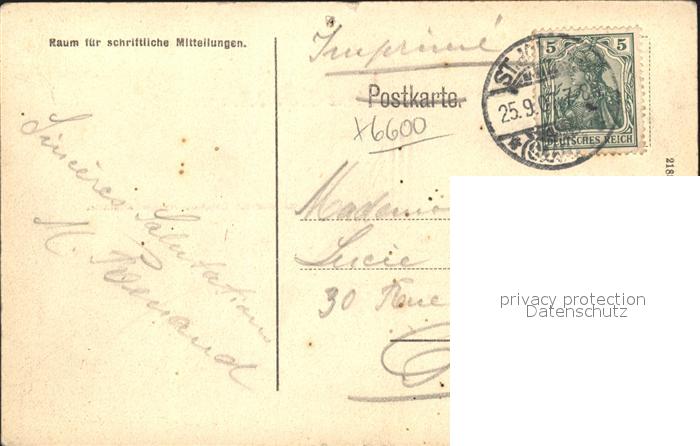 Raum für schriftliche Mitteilungen.
Imprimé
Postkarte.
x6600
5 5
DEUTSCHES REICH
ST.
25.9.0
Sincères Salutations
M.
Lucie
30 Rue
218
privacy protection
Datenschutz